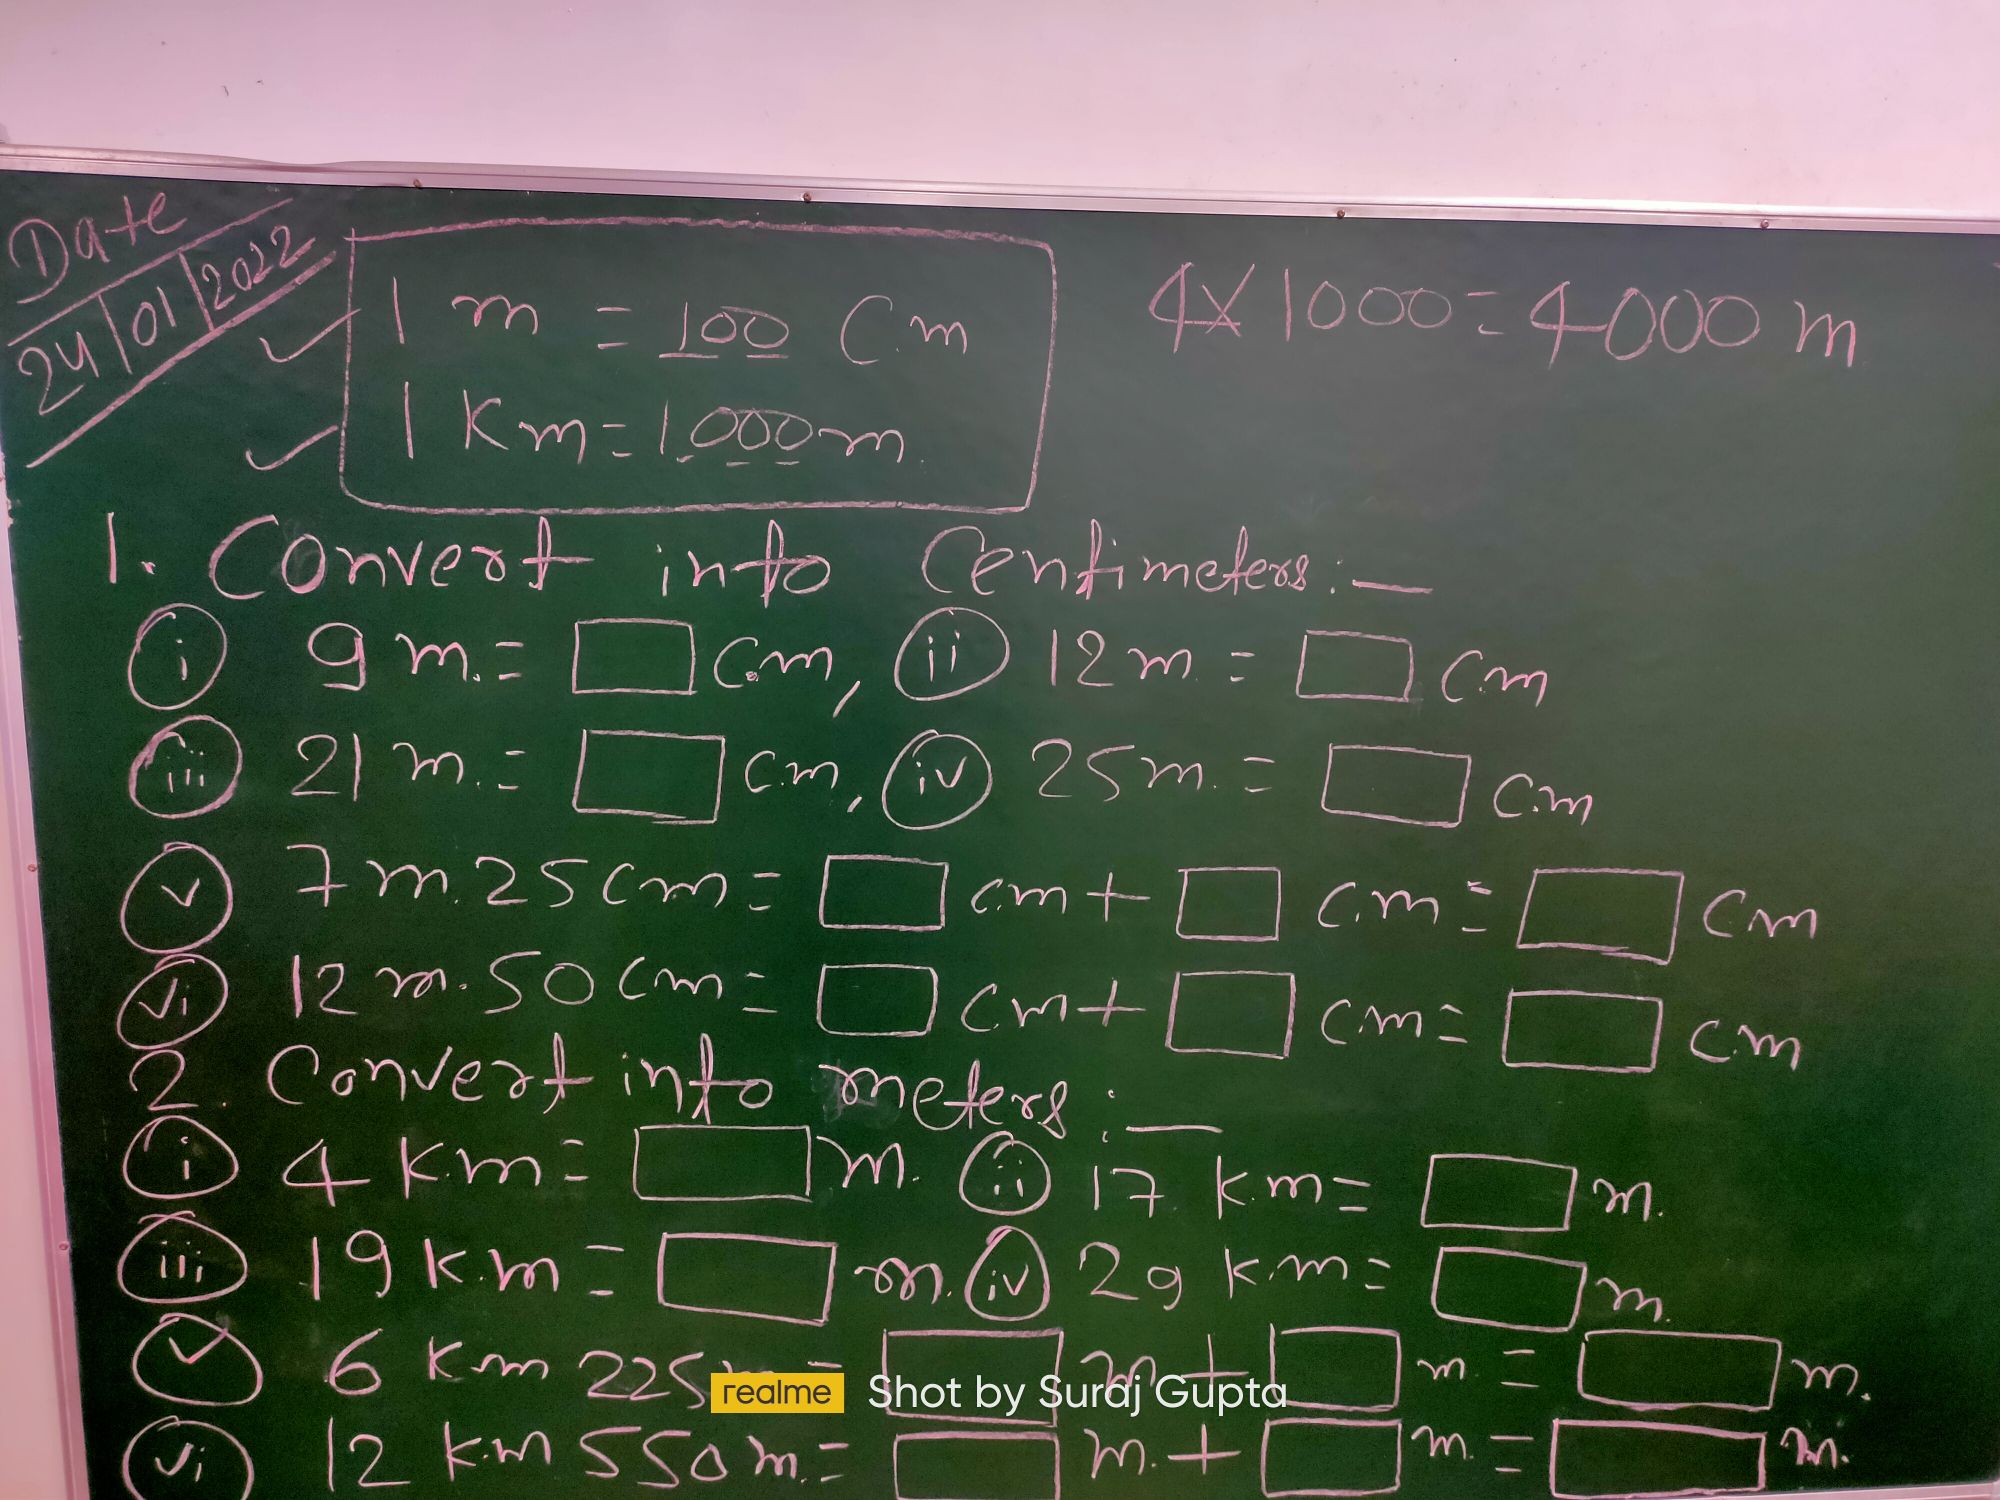 Date
24/01/2022
1 m = 100 Cm
1 Km = 1000 m.
4 X 1000 = 4000 m
1. Convert into Centimeters:—
i 9 m. = cm, ii 12 m. = cm
iii 21 m. = cm, iv 25 m. = cm
v 7 m. 25 cm = cm + cm = cm
vi 12 m. 50 cm = cm + cm = cm
2. Convert into meters:—
i 4 km = m. ii 17 km = m.
iii 19 km = m. iv 29 km = m.
v 6 km 225 m = m + m = m.
vi 12 km 550 m. = m. + m. = m.
realme Shot by Suraj Gupta